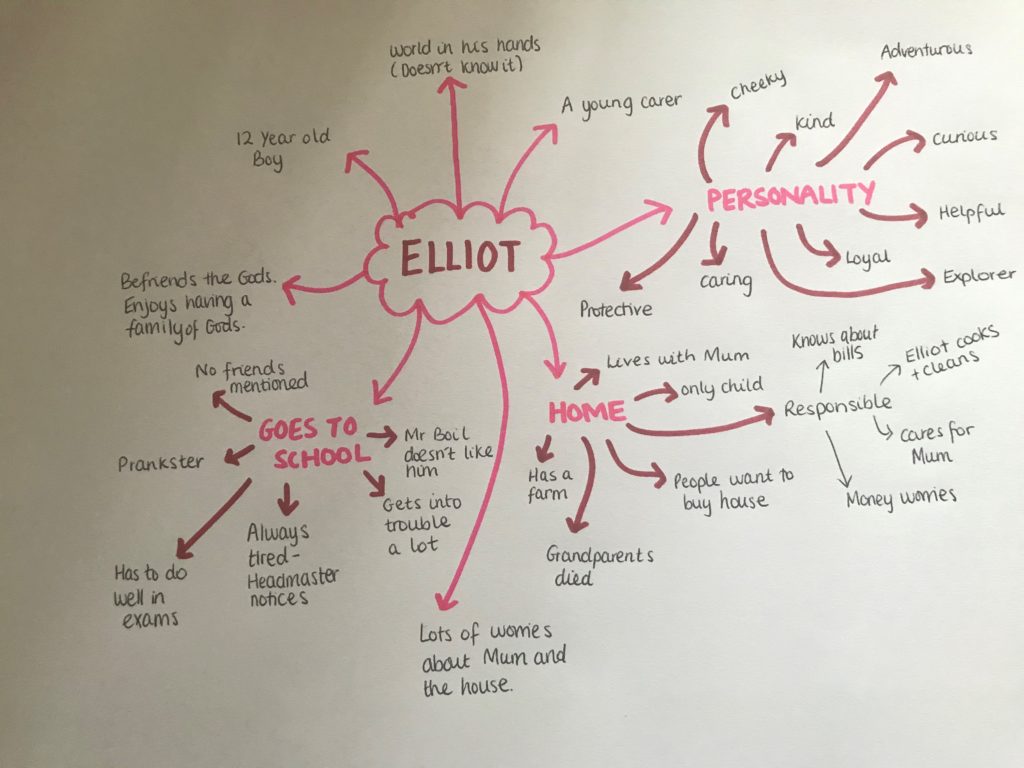 world in his hands
(Doesn't know it)
12 Year old
Boy
A young carer
ELLIOT
Befriends the Gods.
Enjoys having a
family of Gods.
PERSONALITY
cheeky
kind
Adventurous
curious
Helpful
Explorer
Loyal
caring
Protective
GOES TO
SCHOOL
No friends
mentioned
Prankster
Has to do
well in
exams
Always
tired-
Headmaster
notices
Gets into
trouble
a lot
Mr Boil
doesn't like
him
Lots of worries
about Mum and
the house.
HOME
Lives with Mum
only child
Responsible
Knows about
bills
Elliot cooks
+ cleans
cares for
Mum
Money worries
People want to
buy house
Grandparents
died
Has a
farm